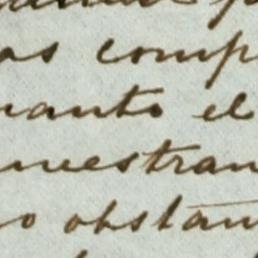 as comp
uanto el
uestran
o obstan